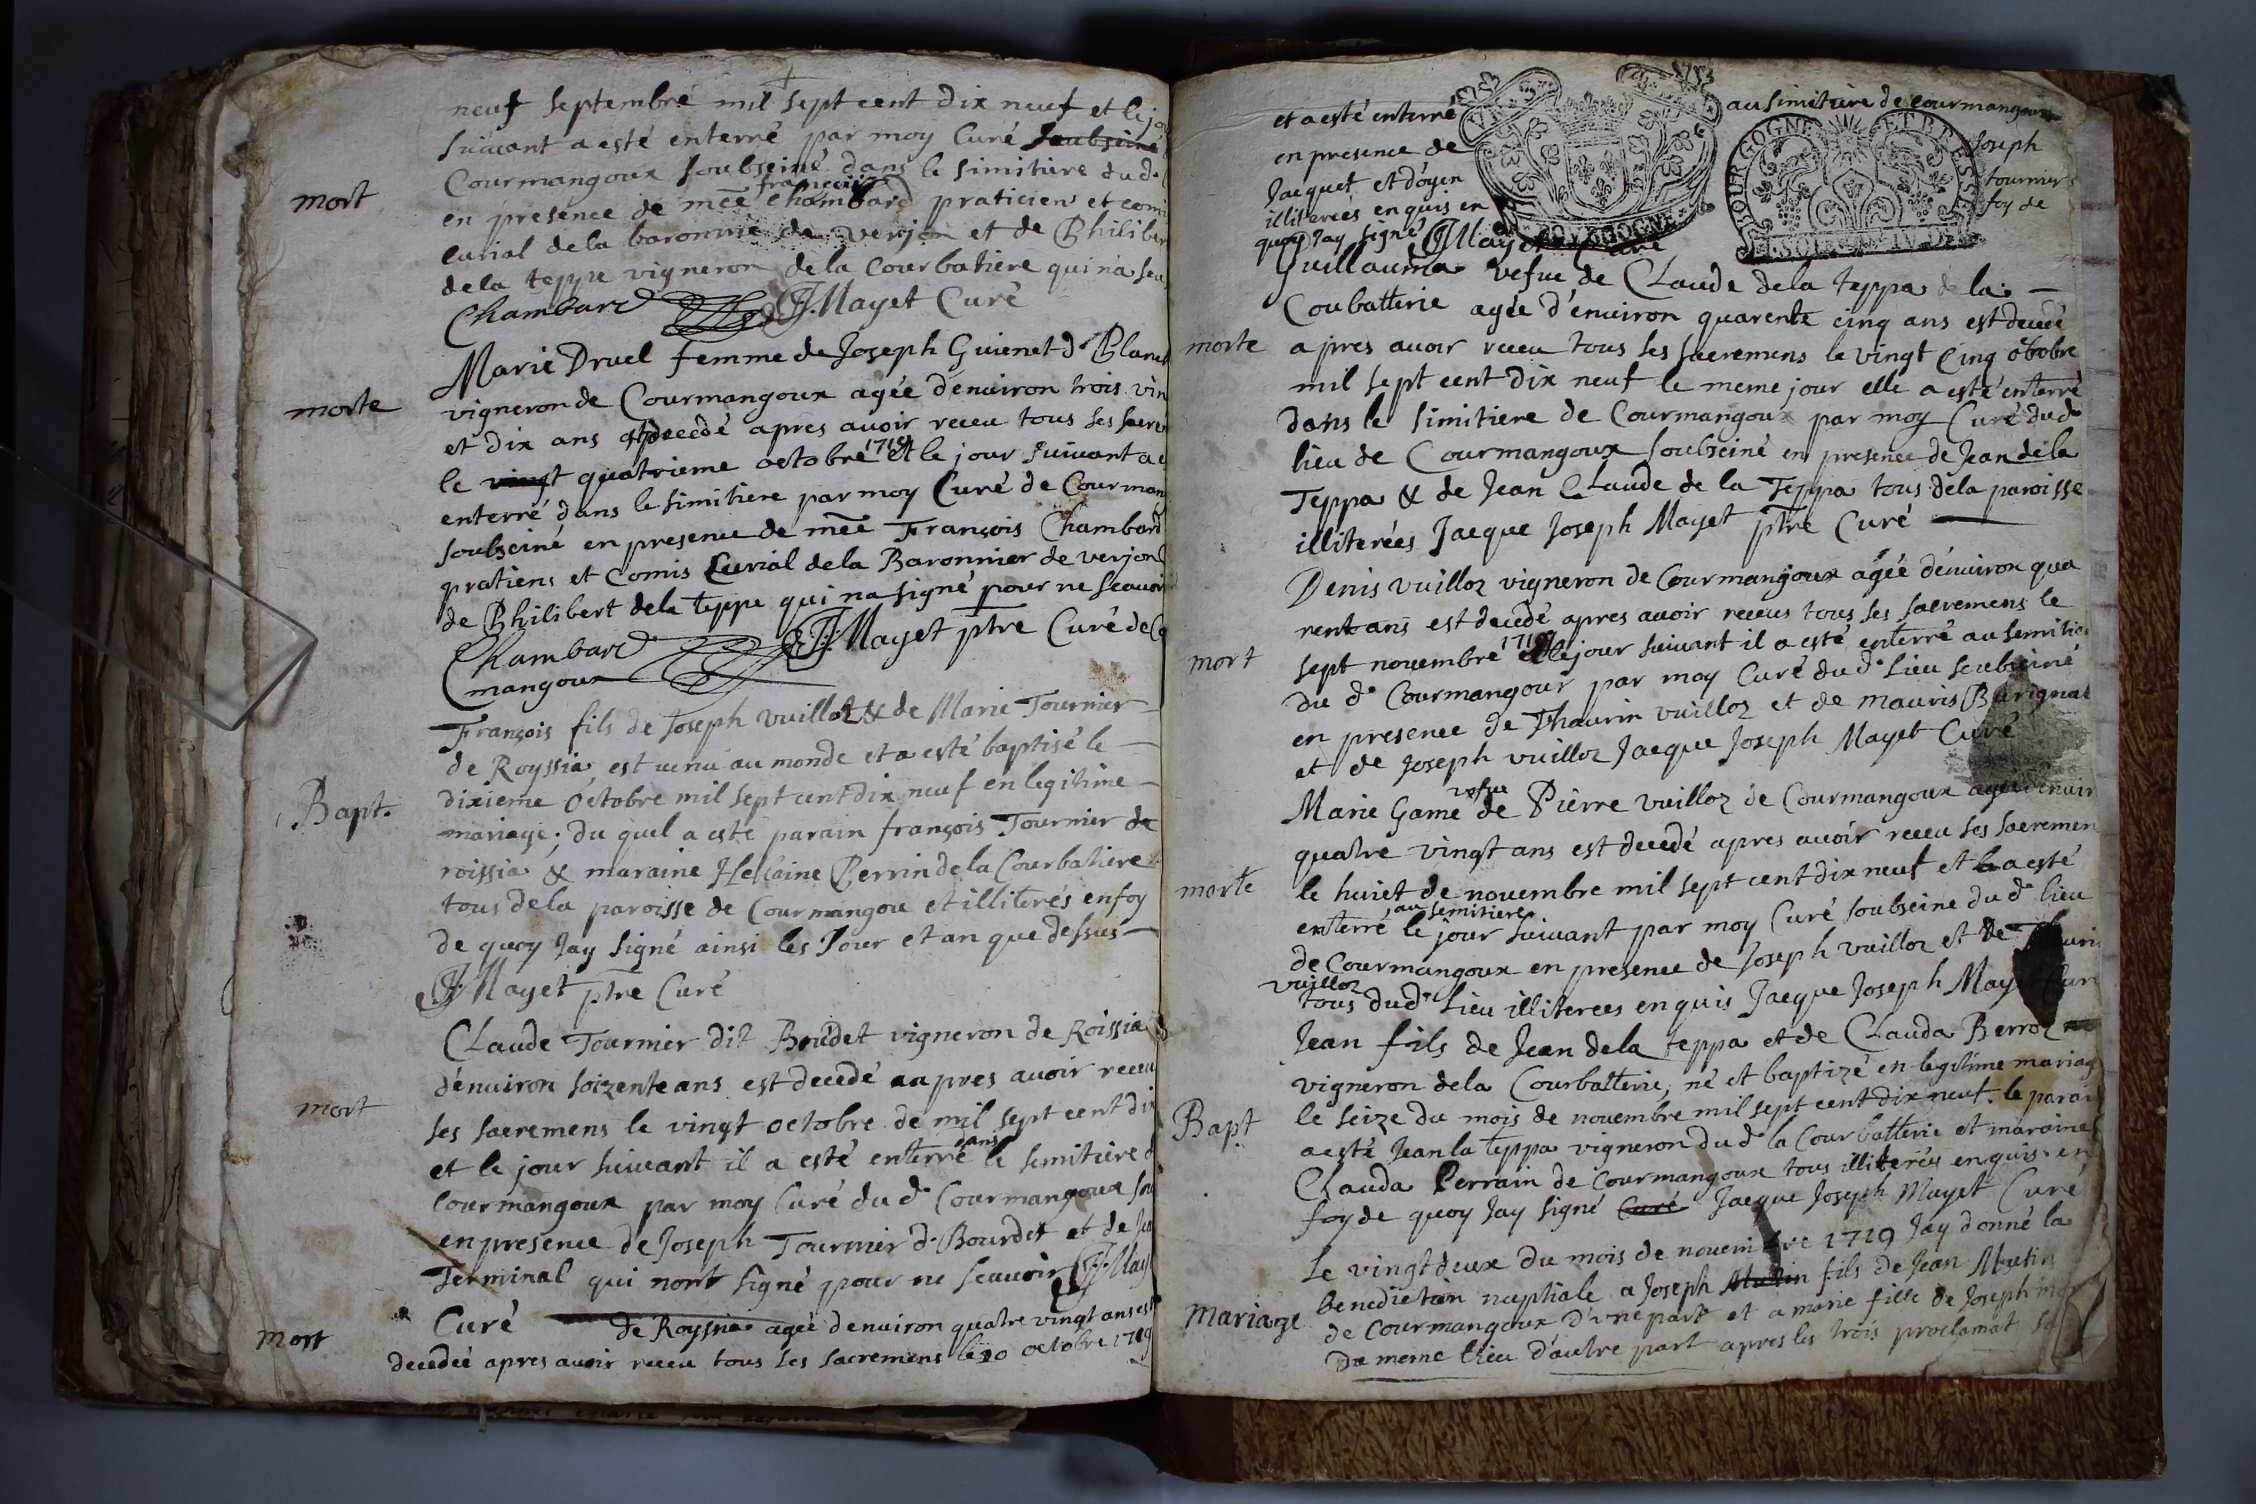 neuf septembre mil sept cent dix neuf et le jo
suivant a esté enterré par moy Curé soubseiné
Courmangoux soubseiné dans le simitiere du d.
mort
françois
en presence de mée Chambard praticien et comi
curial de la baronnie de verjon et de Philiber
de la teppe vigneron de la Courbatiere qui na sceu
Chambard JJ. Mayet Curé
Marie Druel femme de Joseph Guienet d. Blanc
morte
vigneron de Courmangoux agée denviron trois vin
et dix ans est decedé apres avoir receu tous ses sacre
le vingt quatrieme octobre 1719 et le jour suivant a e
enterré dans le simitiere par moy Curé de Courman
soubseiné en presence de mée François Chambard
pratiens et Comis Curial de la Baronnier de verjon
de Philibert dela teppe qui na signé pour ne scavoir
Chambard JJ. Mayet ptre Curé de Co
mangoux
François fils de Joseph vuilloz & de Marie Tournier
de Royssia est venu au monde et a esté baptisé le
Bapt.
dixieme octobre mil sept cent dix neuf en legitime
mariage; du quel a esté parain françois Tournier de
roissia & maraine Hellaine Perrin de la Courbatiere
tous dela paroisse de Courmangou et illiterés en foy
de quoy Jay signé ainsi les Jour et an que dessus
JJ. Mayet ptre Curé
Claude Tournier dit Bourdet vigneron de Roissia
d'environ soizente ans est decedé aapres avoir receu
mort
ses sacremens le vingt octobre de mil sept cent dix
et le jour suivant il a esté enterré dans le semitiere d
Courmangoux par moy Curé du d. Courmangoux sou
en presence de Joseph Tournier d. Bourdet et de Jea
Terminal qui nont signé pour ne scavoir JJ. May
Curé
mort
de Royssia agée denviron quatre vingt ans est
decedée apres avoir receu tous ses sacremens le 20 octobre 1719
et a esté enterré au simitiere de courmangoux
en presence de Joseph
Jacquet et d'oyen tournier
illiterées enquis en foy de
quoy Jay signé JJ Mayet Curé
BOURGOGNE ET BRESSE
Guillauma vefue de Claude dela teppa de la
Coubatterie agée d'environ quarente cinq ans est decedé
morte
apres avoir receu tous ses sacremens le vingt cinq octobre
mil sept cent dix neuf le meme jour elle a esté enterré
dans le simitiere de Courmangoux par moy Curé du d.
lieu de Courmangoux soubseiné en presence de Jean dela
Teppa & de Jean Claude de la Teppa tous dela paroisse
illiterées Jacque Joseph Mayet ptre Curé
Denis vuilloz vigneron de Courmangoux agée d'environ qua
rent ans est decedé apres avoir receus tous ses sacremens le
mort
sept novembre 1719 et le jour suivant il a esté enterré au semitie
du d. Courmangoux par moy Curé du d. lieu soubseiné
en presence de Thaurin vuilloz et de mauris Burignat
et de Joseph vuilloz Jacque Joseph Mayet Curé
Marie Game vefue de Pierre vuilloz de Courmangoux agée denvir
quatre vingt ans est decedé apres avoir receu ses sacremen
morte
le huict de novembre mil sept cent dix neuf et a esté
au semitiere
enterré le jour suivant par moy Curé soubseine du d. lieu
de Courmangoux en presence de Joseph vuilloz et de
vuilloz
tous du d. lieu illiterees enquis Jacque Joseph Mayet Cur
Jean fils de Jean dela teppa et de Clauda Berroz
vigneron dela Courbatterie, né et baptizé en legitime mariag
Bapt
le seize du mois de novembre mil sept cent dix neuf. le parai
a esté Jean la teppa vigneron du d. la Courbatterie et maraine
Clauda Perrain de Courmangoux tous illiterées enquis en
foy de quoy Jay signé Curé Jacque Joseph Mayet Curé
Le vingt deux du mois de novembre 1719 Jay donné la
Mariage
benediction nuptiale a Joseph Mutin fils de Jean Mutin
de Courmangoux D'une part et a marie fille de Joseph
Du meme lieu d'autre part apres les trois proclamat